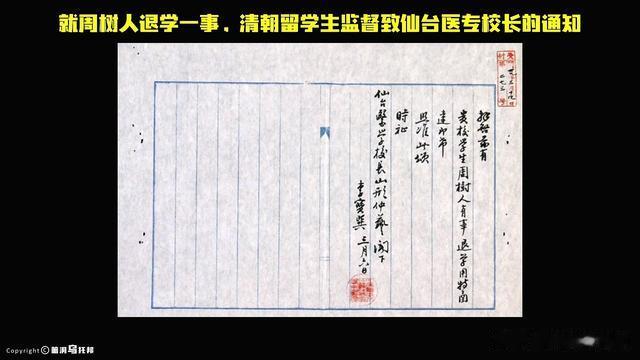 就周树人退学一事，清朝留学生监督致仙台医专校长的通知
敬啓者有
貴校学生周樹人有事退学用特函
達即希
照准此頌
時祉
仙台醫学校長山形仲藝閣下
李寶巽 三月六日
Copyright ©
乌托邦